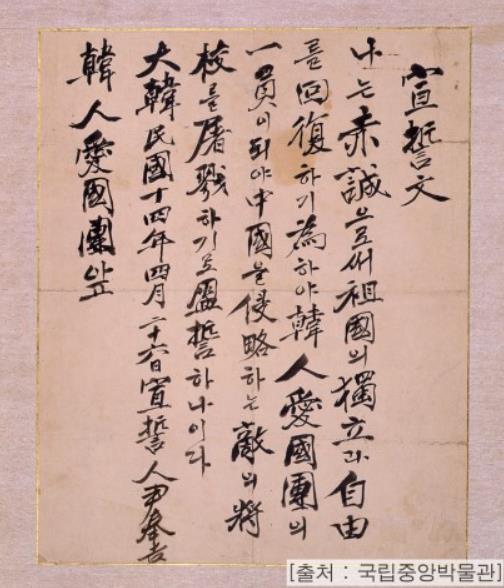 宣誓文
나는 赤誠으로써 祖國의 獨立과 自由
를 回復하기 爲하야 韓人愛國團의
一員이 되야 中國을 侵略하는 敵의 將
校를 屠戮하기로 盟誓하나이다
大韓民國十四年四月二十六日 宣誓人 尹奉吉
韓人愛國團앞
[출처 : 국립중앙박물관]